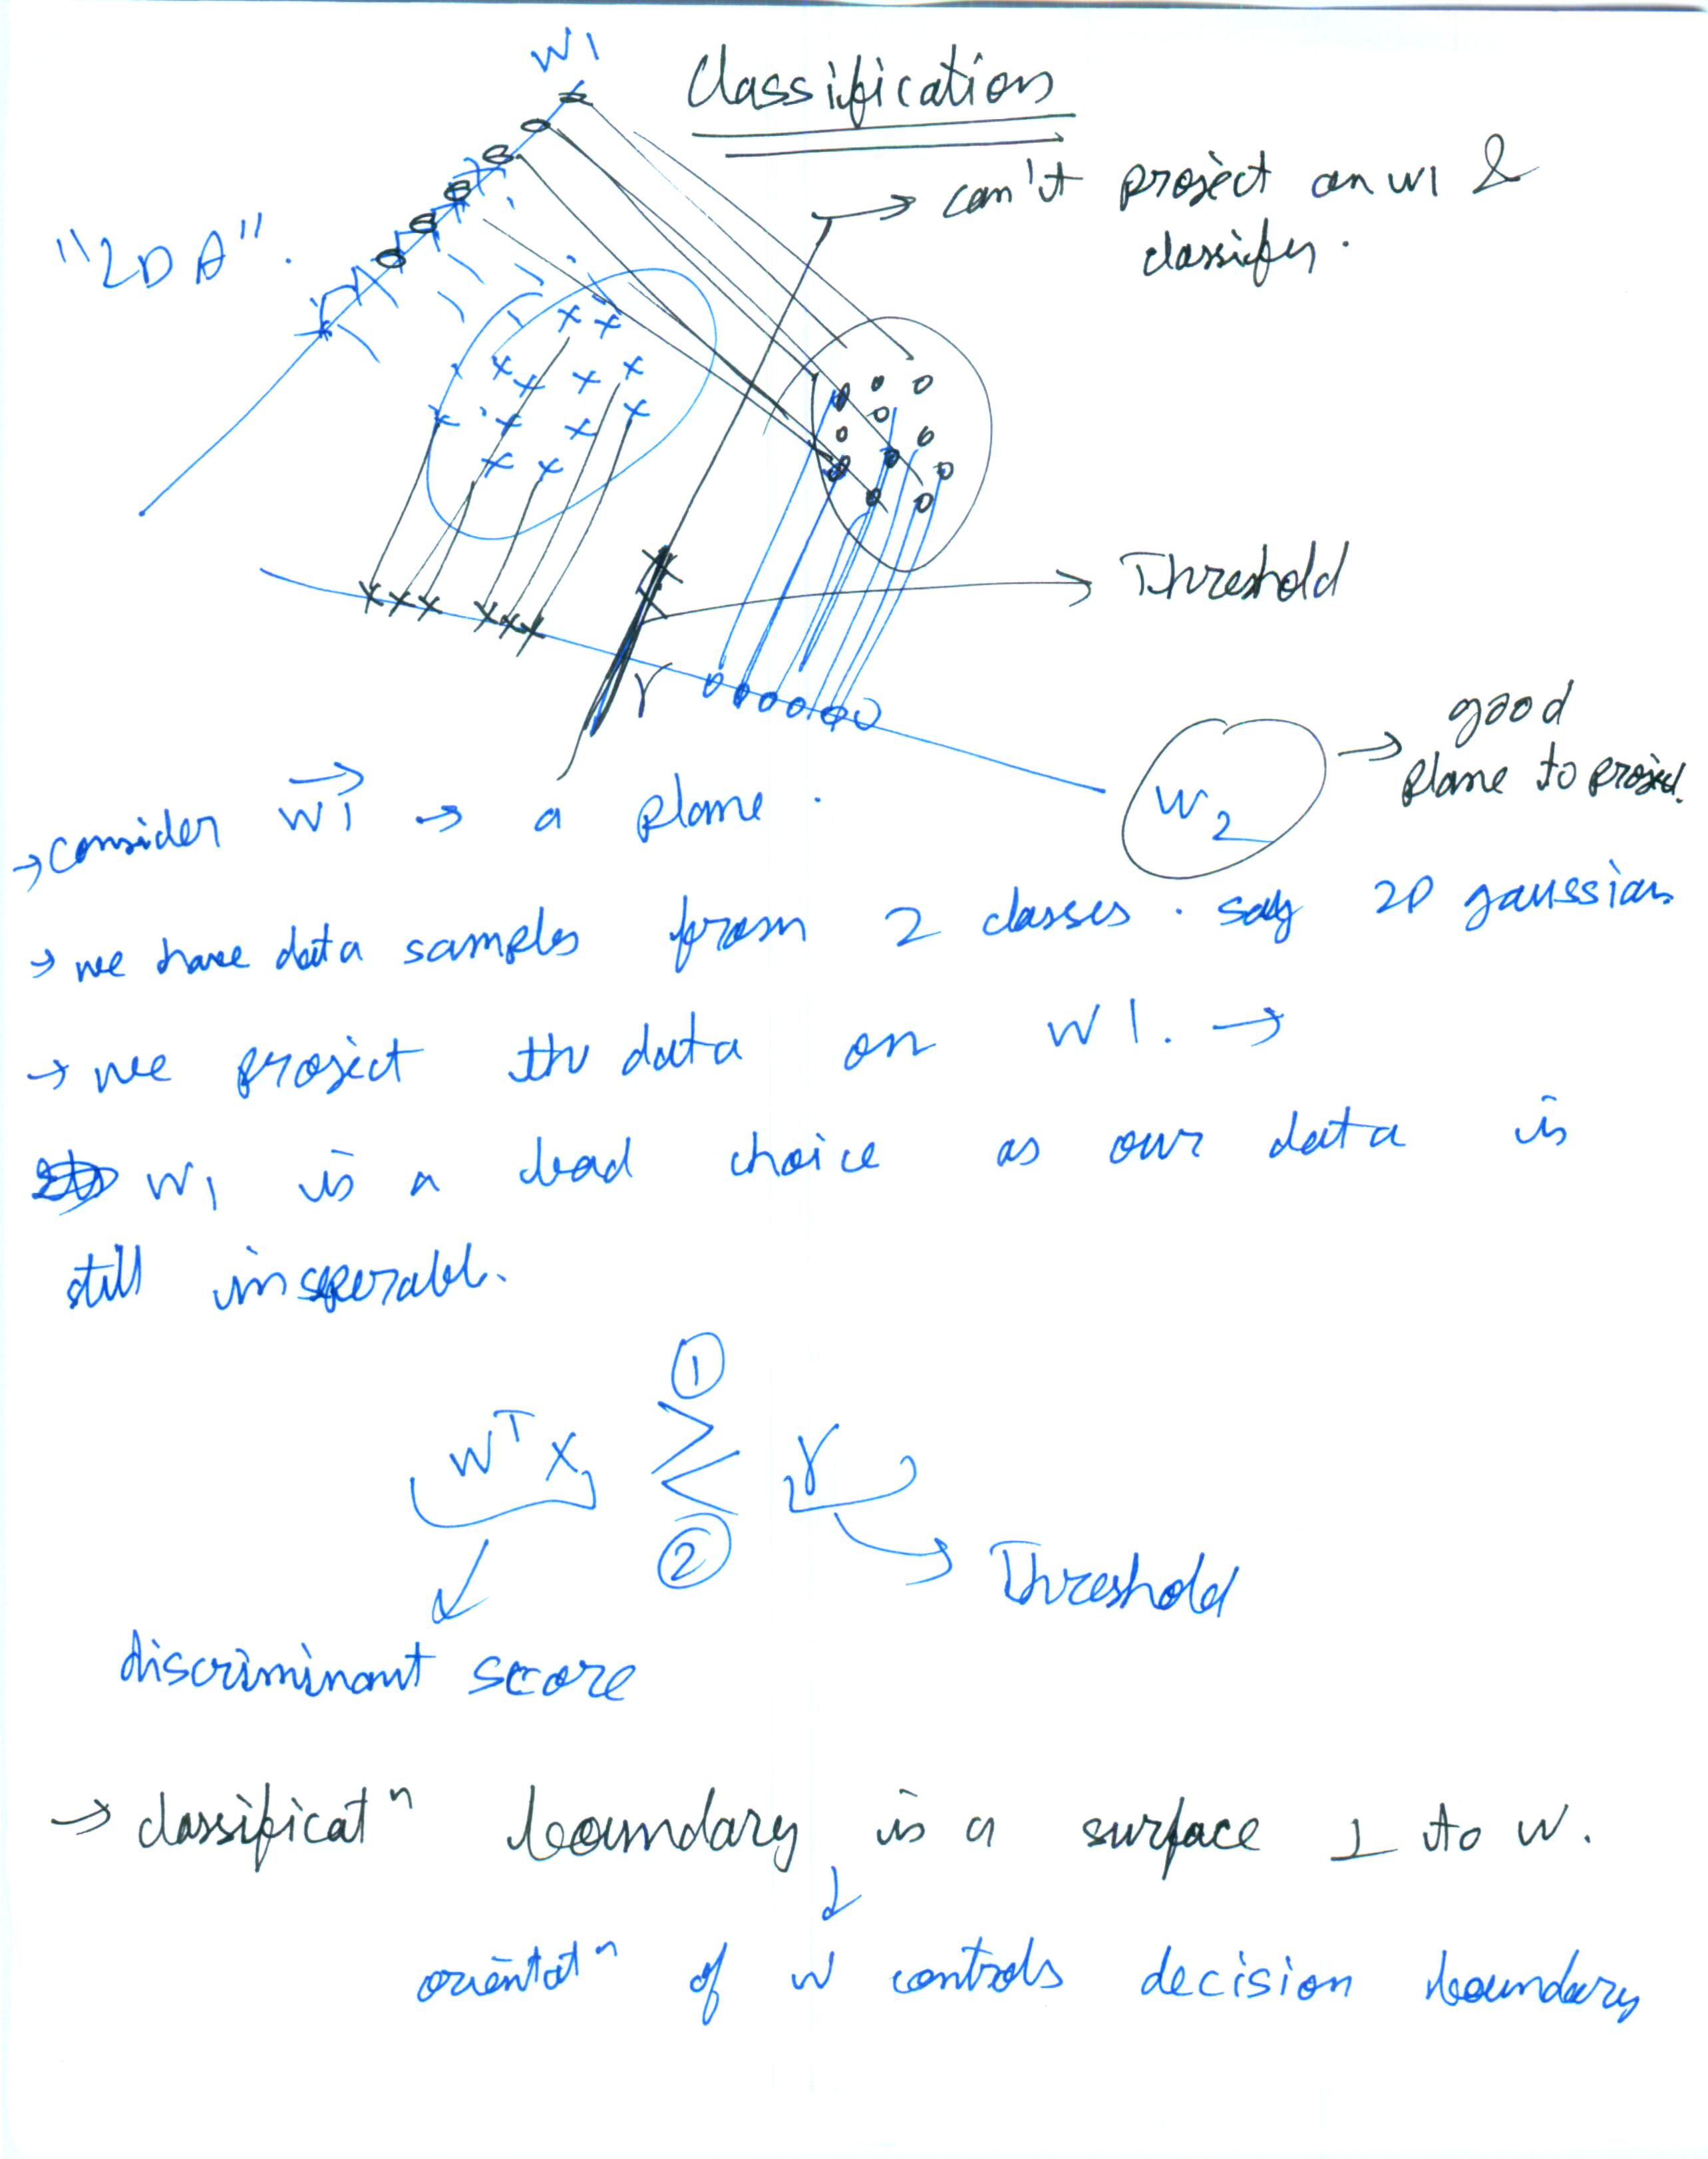 W1
Classification
→ can't project on w1 &
classify.
"LDA".
Threshold
γ
good
plane to project.
W2
→ consider W1 → a plane.
→ we have data samples from 2 classes. say 2D gaussian
→ we project the data on W1. →
W1 is a bad choice as our data is
still inseperable.
①
W^T X ≷ γ
②
Threshold
discriminant score
→ classificat^n boundary is a surface ⊥ to W.
orientat^n of W controls decision boundary